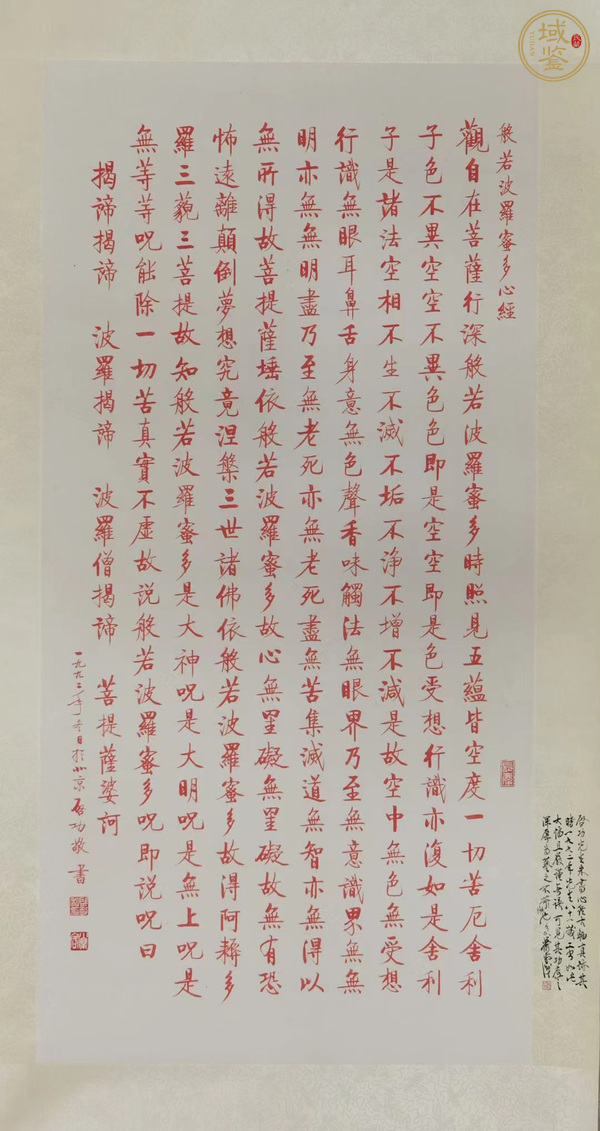 域鉴
YUJIAN
般若波羅蜜多心經
觀自在菩薩行深般若波羅蜜多時照見五蘊皆空度一切苦厄舍利
子色不異空空不異色色即是空空即是色受想行識亦復如是舍利
子是諸法空相不生不滅不垢不淨不增不減是故空中無色無受想
行識無眼耳鼻舌身意無色聲香味觸法無眼界乃至無意識界無無
明亦無無明盡乃至無老死亦無老死盡無苦集滅道無智亦無得以
無所得故菩提薩埵依般若波羅蜜多故心無罣礙無罣礙故無有恐
怖遠離顛倒夢想究竟涅槃三世諸佛依般若波羅蜜多故得阿耨多
羅三藐三菩提故知般若波羅蜜多是大神咒是大明咒是無上咒是
無等等咒能除一切苦真實不虛故說般若波羅蜜多咒即說咒曰
揭諦揭諦 波羅揭諦 波羅僧揭諦 菩提薩婆訶
一九九二年冬日於北京启功敬書
启功先生朱書心經大軸真跡其
時一九九二年先生八十一歲
大幅且嚴謹無誤可見其功底之
深厚